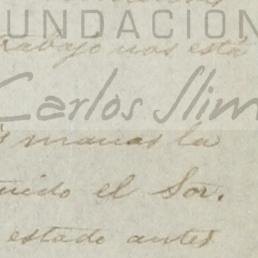 FUNDACIÓN
trabajo nos está
Carlos Slim
manos la
el Sor.
estado antes